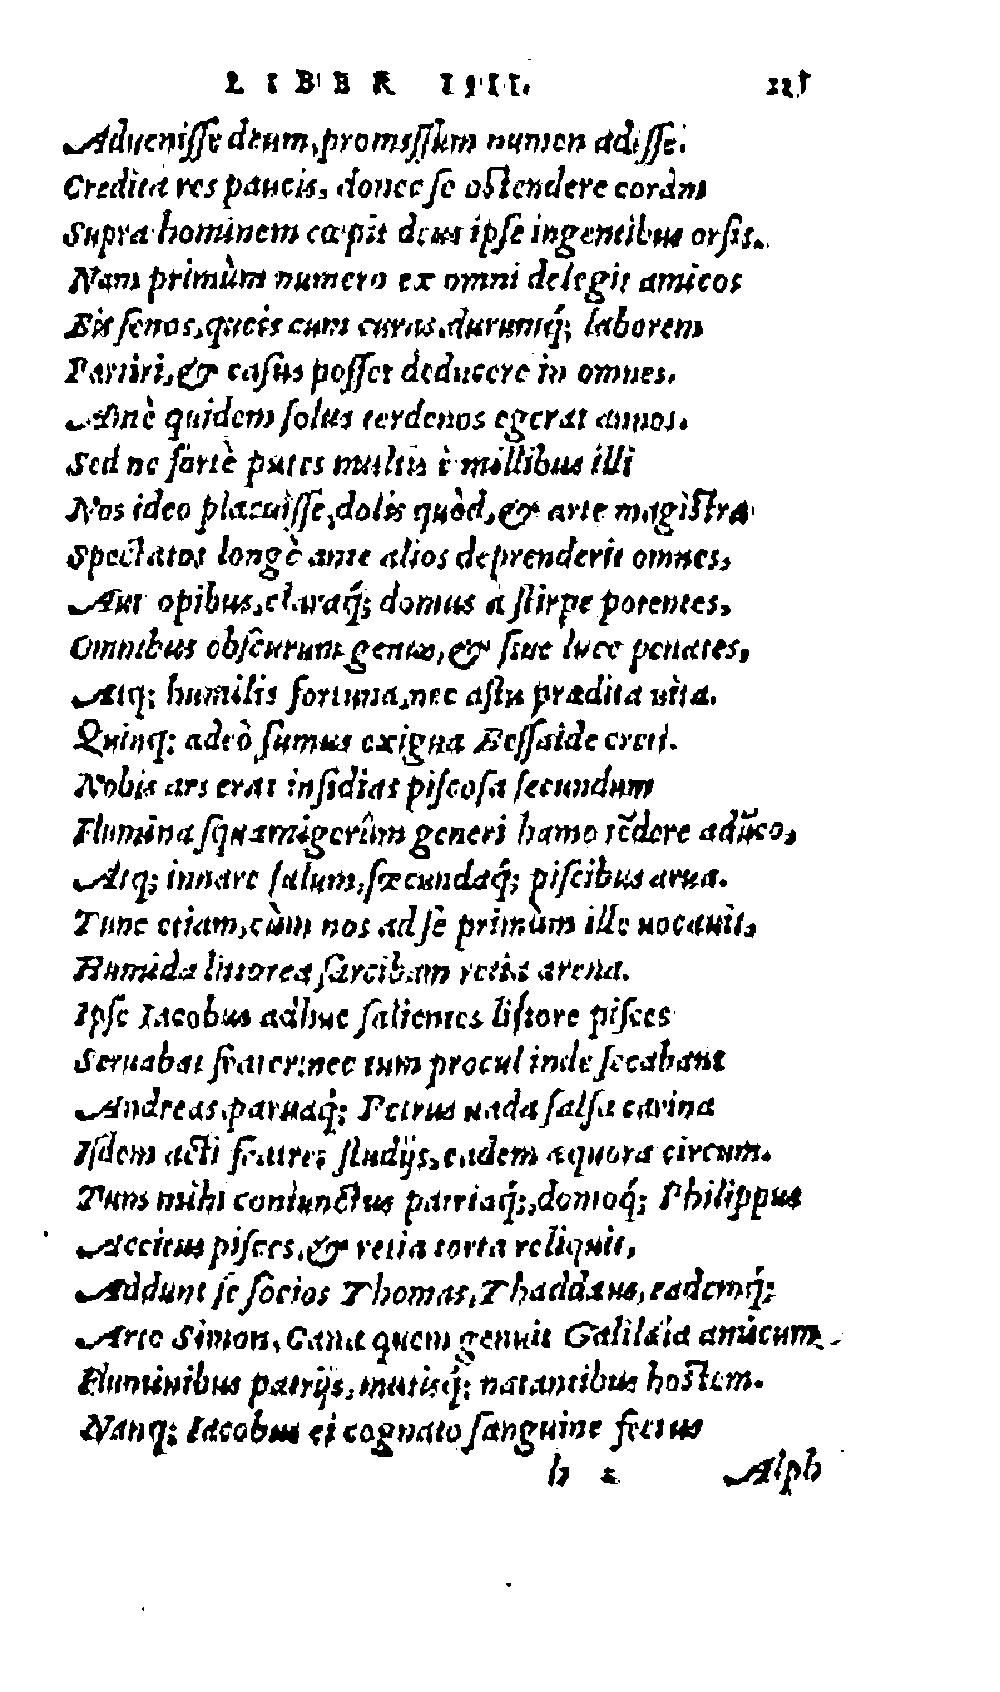 LIBER IIII.
Aduenisse deum, promissum numen adisse.
Credita res paucis, donec se ostendere coràm
Supra hominem cœpit deus ipse ingentibus orsis.
Nam primùm numero ex omni delegit amicos
Bis senos, queis cum curas, durumq́; laborem
Partiri, & casus posset deducere in omnes.
Antè quidem solus terdenos egerat annos.
Sed ne fortè putes multis è millibus illi
Nos ideo placuisse, dolis quòd, & arte magistra
Spectatos longè ante alios deprenderit omnes,
Aut opibus, claraq́; domus à stirpe potentes,
Omnibus obscurum genus, & sine luce penates,
Atq; humilis fortuna, nec astu prædita uita.
Quinq; adeò sumus exigua Bessaide creti.
Nobis ars erat insidias piscosa secundum
Flumina squamigerûm generi hamo tēdere adūco,
Atq; innare salum, fœcundaq́; piscibus arua.
Tunc etiam, cùm nos ad sè primùm ille uocauit,
Humida littorea sarcibam retia arena.
Ipse Iacobus adhuc salientes littore pisces
Seruabat frater: nec tum procul inde secabant
Andreas, paruaq́; Petrus uada salsa carina
Isdem acti fratres studijs, eadem æquora circum.
Tum mihi coniunctus patriaq́;, domoq́; Philippus
Accitus pisces, & retia torta reliquit,
Addunt se socios Thomas, Thaddæus, eademq́;
Arte Simon, Cana quem genuit Galilæa amicum
Fluminibus patrijs, mutisq́; natantibus hostem.
Nanq; Iacobus ei cognato sanguine fretus
h Alph